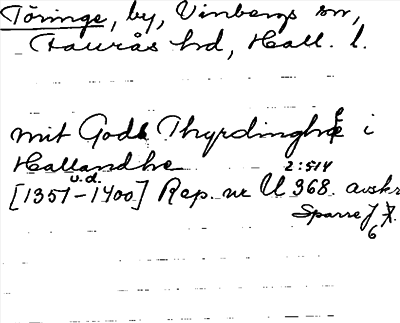 Töringe, by, Vinbergs sn,
Faurås hd, Hall. l.
mit Gods Thyrdinghe i
Hallandhe
u.d. 2:514
[1351-1400] Rep. nr U 368. avskr
Sparre
6